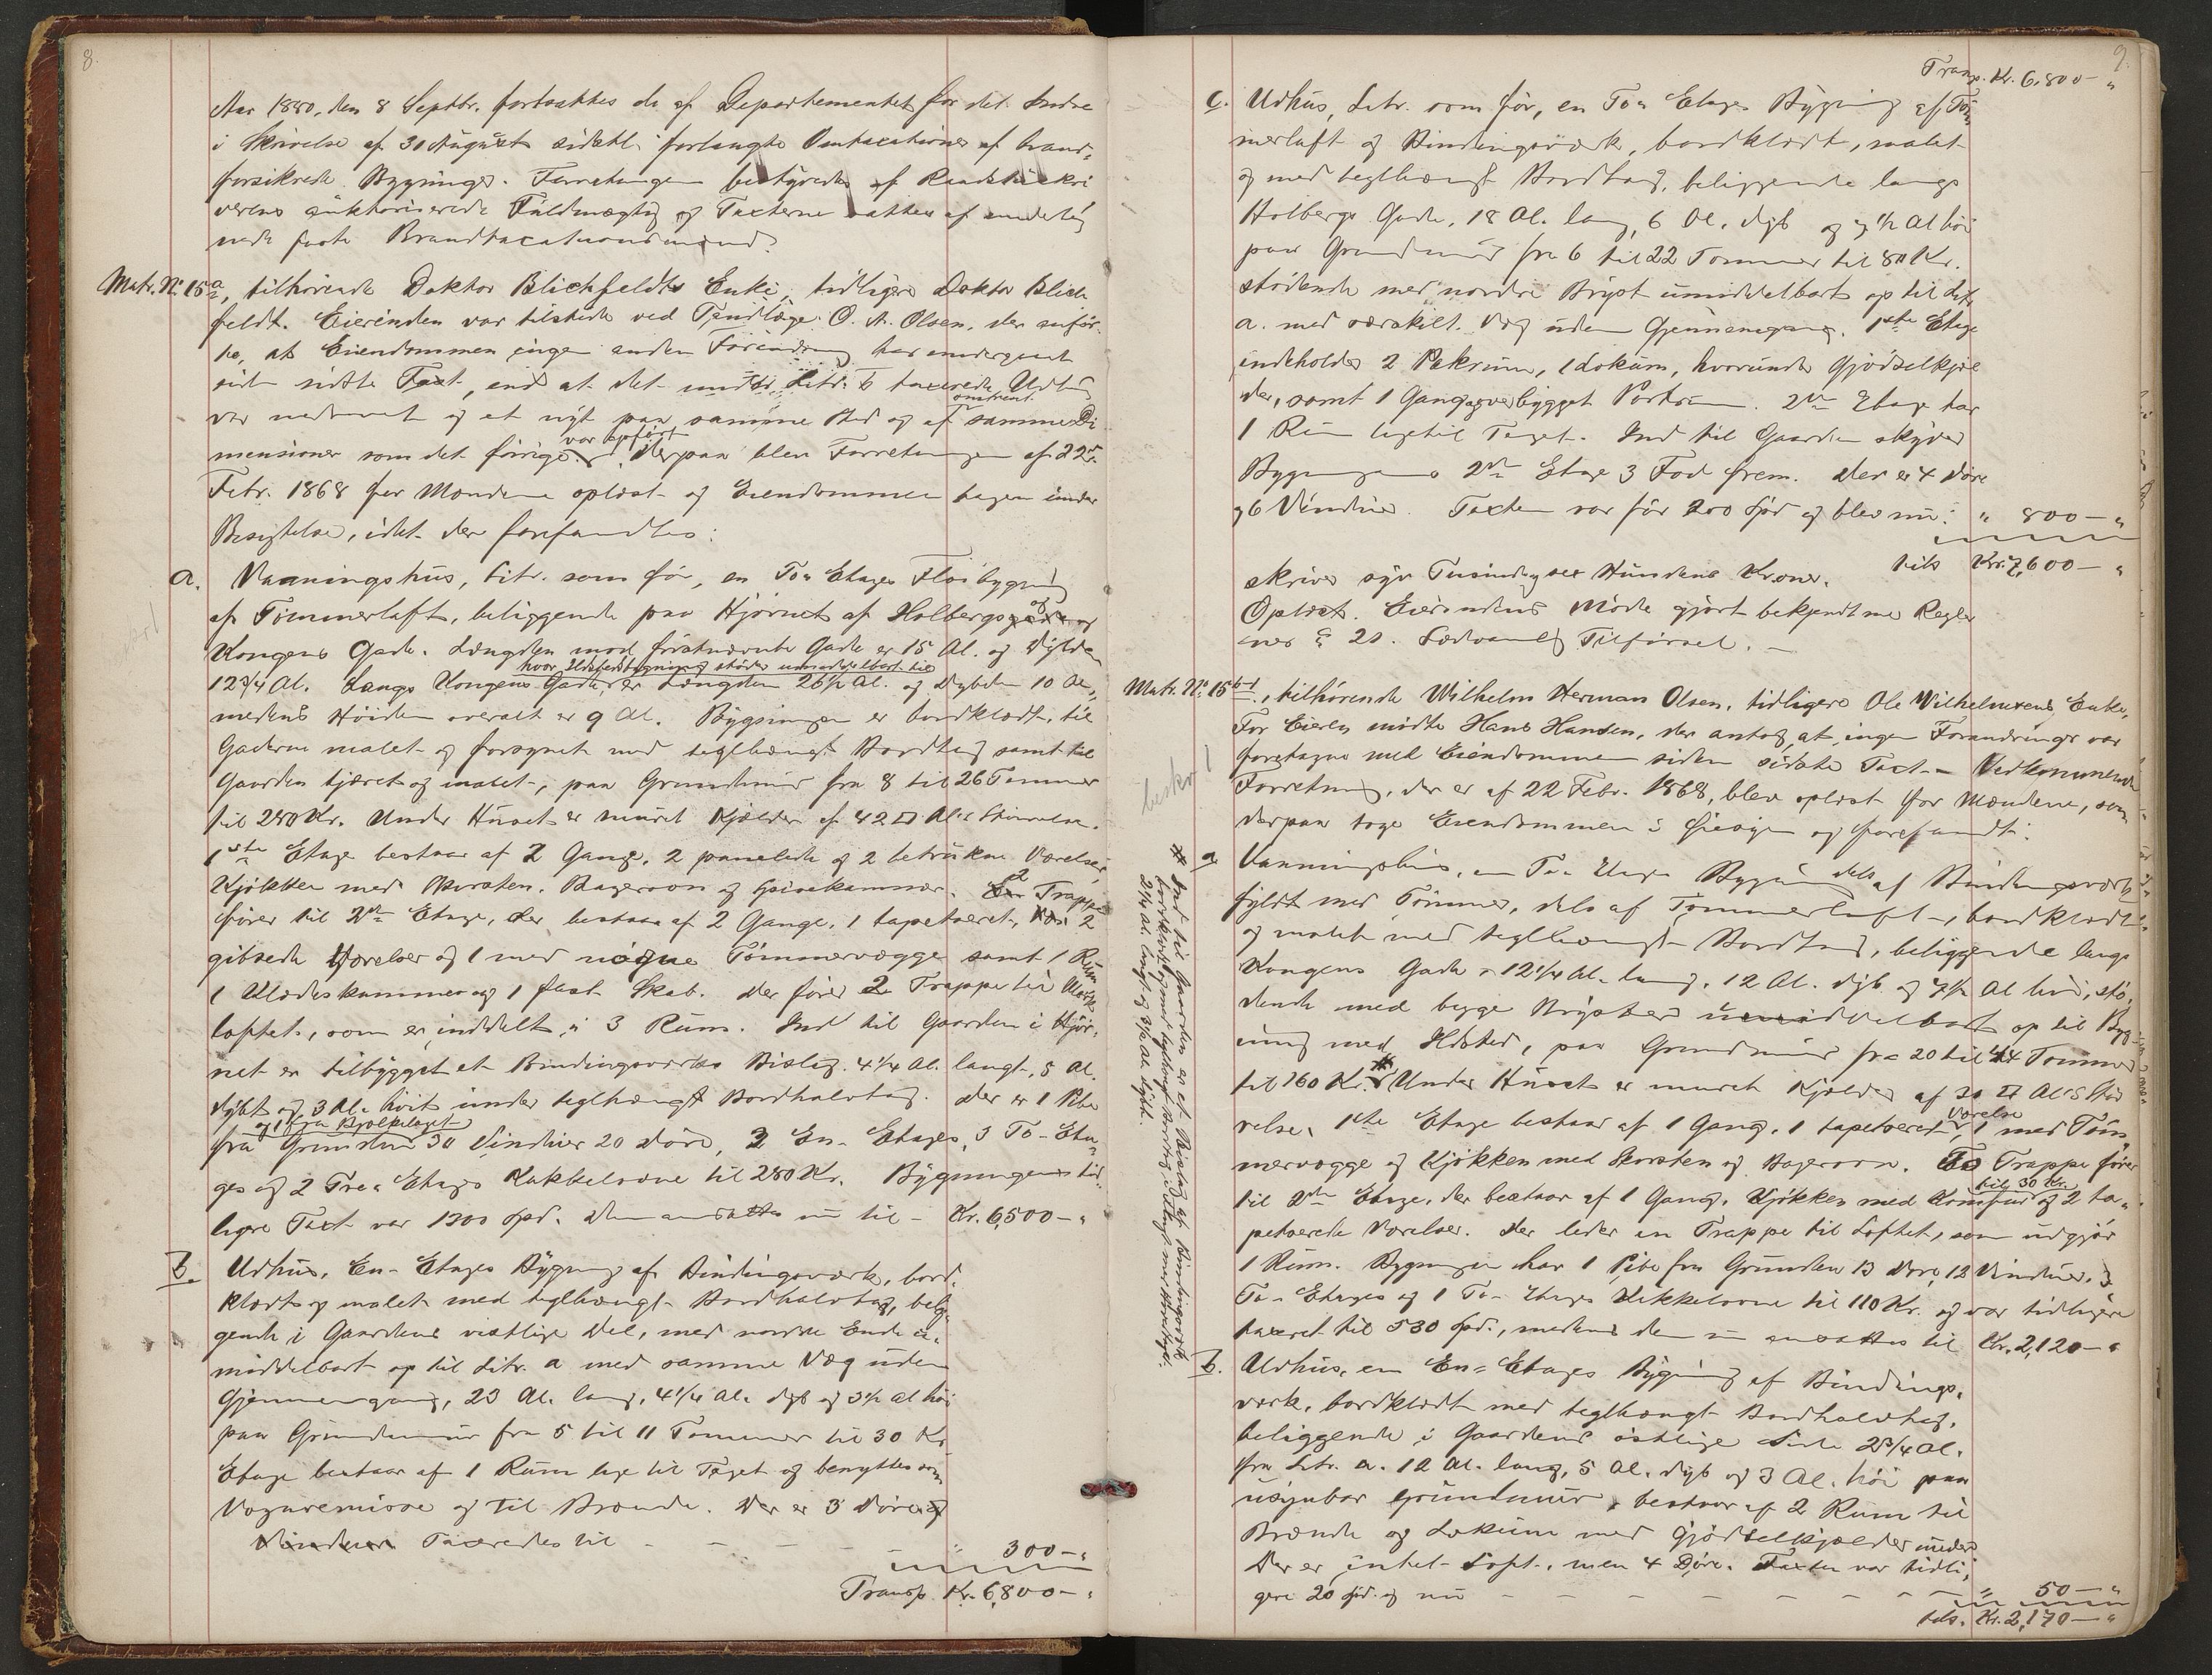 8.
Aar 1880, den 8 Septbr. fortsattes de af Departementet for det Indre
i Skrivelse af 30 August sidstl. forlangte Omtaxationer af brand-
forsikrede Bygninger. Forretningen bestyredes af Raadstueskri
verens auktoriserede Fuldmægtig og Taxterne sattes af underteg
nede faste Brandtaxationsmænd.
Matr. No. 15a, tilhørende Doktor Blichfeldts Enke, tidligere Doktor Blich
feldt. Eierinden var tilstede ved Tandlæge O. A. Olsen, der anfør-
te, at Eiendommen ingen anden Forandring har undergaaet
siden sidste Taxt, end at det under Litr. b taxerede Udhus
var nedrevet og et nyt paa samme Sted og af omtrent samme Di
mensioner som det forrige var opført. Derpaa blev Forretningen af 22de
Febr. 1868 for Mændene oplæst og Eiendommen tagen under
Besigtelse, idet der forefandtes:
a. Vaaningshus, Litr. som før, en To-Etages Fløibygning
af Tømmerlaft, beliggende paa Hjørnet af Holbergs og
Kongens Gade. Længden mod førstnævnte Gade er 15 Al. og Dybden
12 3/4 Al. Langs Kongens Gade, hvor Ildstedsbygning støder umiddelbart til er Længden 26 1/2 Al. og Dybden 10 Al,
medens Høiden overalt er 9 Al. Bygningen er bordklædt, til
Gaderne malet og forsynet med teglhængt Bordtag samt til
Gaarden tjæret og malet, paa Grundmur fra 8 til 26 Tommer
til 280 Kr. Under Huset er muret Kjælder af 42 □ Al.s Størrelse.
1ste Etage bestaar af 2 Gange, 2 panelede og 2 betrukne Værelser,
Kjøkken med Skorsten, Bagerovn og Spisekammer. 2 Trapper
fører til 2den Etage, der bestaar af 2 Gange, 1 tapetseret, 2
gibsede Værelser og 1 med nøgne Tømmervægge samt 1 Rum
1 Klædeskammer og 1 fast Skab. Der fører 2 Trapper til Mørk
loftet, som er inddelt i 3 Rum. Ind til Gaarden i Hjør-
net er tilbygget et Bindingsværks Bislag. 4 1/4 Al. langt, 5 Al.
dybt og 3 Al. høit under teglhængt Bordhalvtag. Der er 1 Pibe
fra Grunden og 1 fra Bjelkelaget 30 Vinduer 20 Døre, 2 En-Etages, 3 To-Eta-
ges og 2 Tre-Etages Kakkelovne til 280 Kr. Bygningens tid-
ligere Taxt var 1300 Spd. Den ansattes nu til – Kr. 6,500 – "
b. Udhus, En-Etages Bygning af Bindingsværk, bord-
klædt og malet med teglhængt Bordhalvtag, belig
gende i Gaardens vestlige Del, med nordre Ende u-
middelbart op til Litr. a med samme Væg uden
Gjennemgang, 23 Al. lang, 4 1/4 Al. dyb og 3 1/2 Al høi
paa Grundmur fra 5 til 11 Tommer til 30 Kr
Etage bestaar af 1 Rum lige til Taget og benyttes som
Vognremisse og til Brænde. Der er 3 Døre og
Vinduer Taxeredes til – – – – " 300 – "
Transp. Kr. 6,800 – "
9.
Transp. Kr. 6,800 – "
c. Udhus, Litr. som før, en To-Etages Bygning af Tøm
merlaft og Bindingsværk, bordklædt, malet
og med teglhængt Bordtag, beliggende langs
Holbergs Gade, 18 Al. lang, 6 Al. dyb og 7 1/2 Al høi
paa Grundmur fra 6 til 22 Tommer til 80 Kr.
stødende med nordre Bryst umiddelbart op til Litr
a. med særskilt Væg uden Gjennemgang. 1ste Etage
indeholder 2 Pakrum, 1 Lokum, hvorunder Gjødselkjæl
der, samt 1 Gang og overbygget Portrum. 2den Etage har
1 Rum lige til Taget. Ind til Gaarden skyder
Bygningens 2den Etage 3 Fod frem. Der er 4 Døre
og 6 Vinduer. Taxten var før 200 Spd og blev nu: " 800 – "
tils Kr. 7,600 – "
skriver syv Tusinde og sex Hundrede Kroner.
Oplæst. Eierindens Møde gjort bekjendt med Regler
nes § 20. Sædvanlig Tilførsel. –
Matr. No. 15b1, tilhørende Wilhelm Herman Olsen, tidligere Ole Wilhelmsens Enke,
For Eieren mødte Hans Hansen, der antog, at ingen Forandringer var
foretagne med Eiendommen siden sidste Taxt – Vedkommende
Forretning, der er af 22 Febr. 1868, blev oplæst for Mændene, som
derpaa toge Eiendommen i Øiesyn og forefandt:
a Vaaningshus, en To-Etages Bygning dels af Bindingsværk
fyldt med Tømmer, dels af Tømmerlaft, bordklædt
og malet med teglhængt Bordtag, beliggende langs
Kongens Gade, 12 1/4 Al. lang, 12 Al. dyb og 7 1/2 Al høi, stø-
dende med begge Bryster umiddelbart op til Byg-
ning med Ildsted, paa Grundmur fra 20 til 44 Tommer
til 160 Kr. # Under Huset er muret Kjælder af 30 □ Al's Stør
relse. 1ste Etage bestaar af 1 Gang, 1 tapetseret Værelse, 1 med Tøm-
mervægge og Kjøkken med Skorsten og Bagerovn. To Trapper fører
til 2den Etage, der bestaar af 1 Gang, Kjøkken med Komfur til 30 Kr. og 2 ta-
petserede Værelser. Der leder en Trappe til Loftet, som udgjør
1 Rum. Bygningen har 1 Pibe fra Grunden 13 Døre, 12 Vinduer, 3
To-Etages og 1 To-Etages Kakkelovne til 110 Kr. og var tidligere
taxeret til 530 Spd., medens den nu ansattes til Kr. 2,120 – "
b. Udhus, en En-Etages Bygning af Bindings-
værk, bordklædt med teglhængt Bordhalvtag,
beliggende i Gaardens østlige Side 2 3/4 Al.
fra Litr. a. 12 Al. lang, 5 Al. dyb og 3 Al. høi paa
usynbar Grundmur, bestaar af 2 Rum til
Brænde og Lokum med Gjødselkjælder under
Der er intet Loft, men 4 Døre. Taxten var tidli-
gere 20 Spd. og nu – – – – – " 50 – "
tils. Kr. 2,170 – "
# Ind til Gaarden er et Bislag af Bindingsværk
bordklædt og med teglhængt
2 1/4 Al. langt og 3 1/2 Al. dybt.
beskr